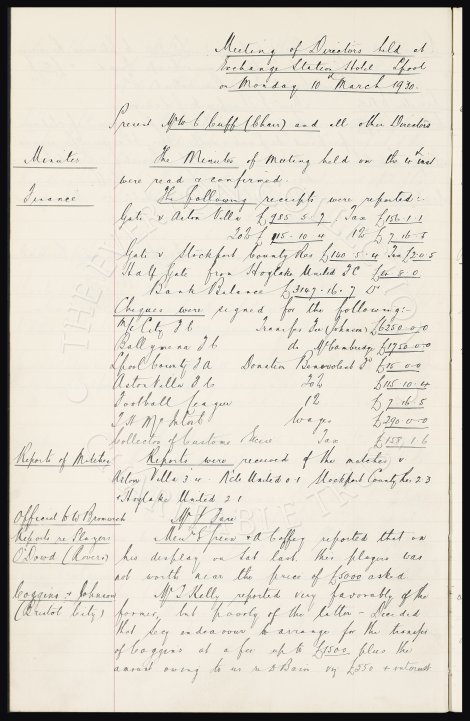 Meeting of Directors held at
Exchange Station Hotel Lpool
on Monday 10th March 1930.
Present Mr W C Cuff (Chair) and all other Directors
Minutes The Minutes of Meeting held on the 4th inst
were read & confirmed.
Finance The following receipts were reported:-
Gate v Aston Villa £985. 5. 7 Tax £156. 1. 1
20% £115. 10. 4 1% £7. 16. 5
Gate v Stockport County Res £140. 5. 4 Tax
Half Gate from Hoylake United FC
Bank Balance £3147. 16. 7 Dr
Cheques were signed for the following:-
M/c City F C Transfer Fee (Johnson) £6250. 0. 0
Ballymena F C do McCambridge £1750. 0. 0
Lpool County F A Donation Benevolent Fd £15. 0. 0
Aston Villa F C 20% £115. 10. 4
Football League 1% £7. 16. 5
T H McIntosh Wages £290. 0. 0
Collector of Customs & Excise Tax £158. 1. 6
Reports of Matches Reports were received of the matches v
Aston Villa 3.4 United 0.1 Stockport County Res 2.3
& Hoylake United 2.1
Offered to W Bromwich Mr
Reports re Players Messrs Green & A Coffey reported that on
O'Dowd (Rovers) his display on Sat last this players was
not worth near the price of £5000 asked
Coggins & Johnson Mr T Kelly reported very favorably of the
(Bristol City) former, but poorly of the latter - Decided
that Secy endeavour to arrange for the transfer
of Coggins at a fee up to £1500 plus the
amount owing to us re Bain viz £350 + interest
THE EVERTON COLLECTION CHARITABLE TRUST